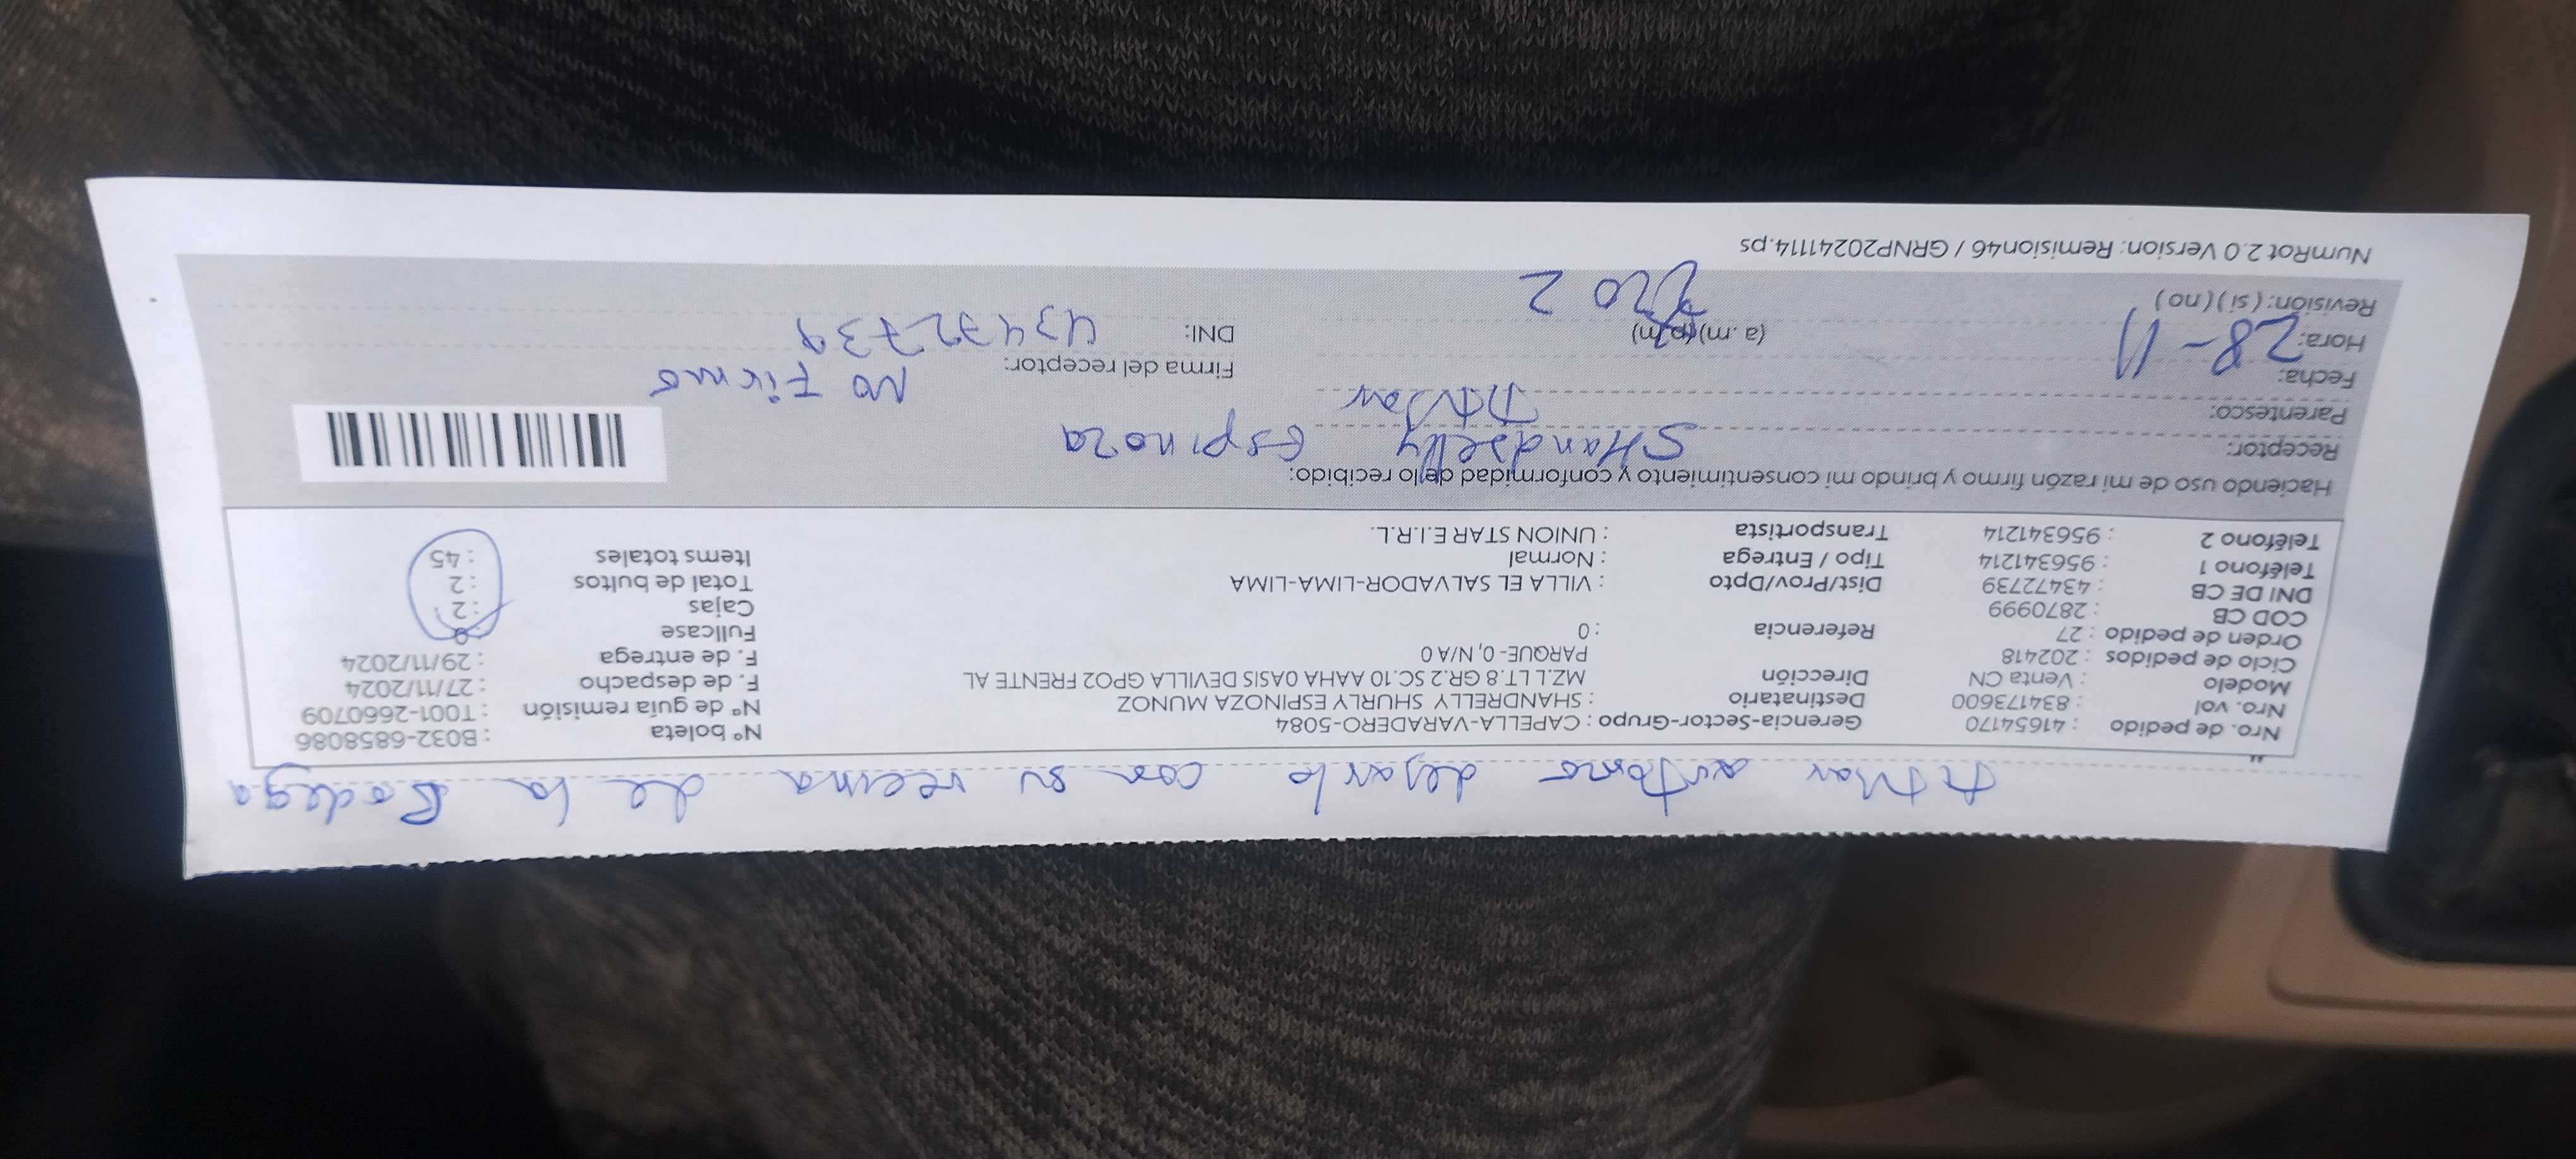 Titular autorizo dejarlo con su vecina de la Bodega
Nro. de pedido : 41654170 Gerencia-Sector-Grupo : CAPELLA-VARADERO-5084 N° boleta : B032-6858086
Nro. vol : 834173600 Destinatario : SHANDRELLY SHURLY ESPINOZA MUNOZ N° de guía remisión : T001-2660709
Modelo : Venta CN Dirección MZ.L LT.8 GR.2 SC.10 AAHA OASIS DEVILLA GPO2 FRENTE AL F. de despacho : 27/11/2024
Ciclo de pedidos : 202418 PARQUE- 0, N/A 0 F. de entrega : 29/11/2024
Orden de pedido : 27 Referencia : 0 Fullcase : 0
COD CB : 2870999 Cajas : 2
DNI DE CB : 43472739 Dist/Prov/Dpto : VILLA EL SALVADOR-LIMA-LIMA Total de bultos : 2
Teléfono 1 : 956341214 Tipo / Entrega : Normal Items totales : 45
Teléfono 2 : 956341214 Transportista : UNION STAR E.I.R.L.
Haciendo uso de mi razón firmo y brindo mi consentimiento y conformidad de lo recibido:
Receptor: SHandrelly Espinoza
Parentesco: Titular
Fecha: 28-11 Firma del receptor: No Firmo
Hora: (a. m) (p. m) DNI: 43472739
Revisión: ( si ) ( no )
NumRot 2.0 Version: Remision46 / GRNP20241114.ps